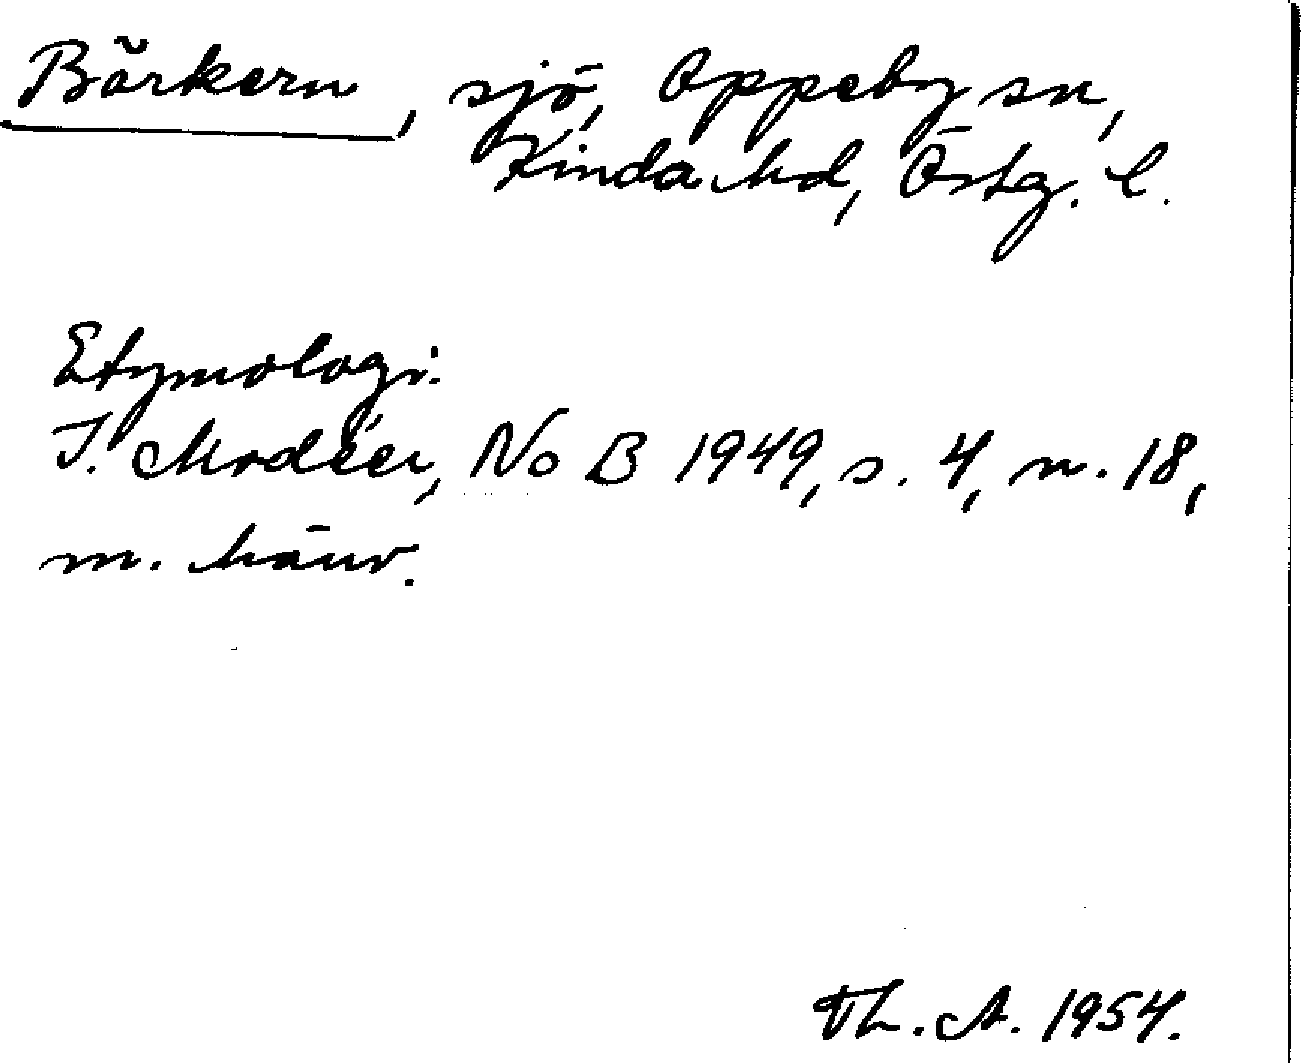 Bärkern, sjö, Oppeby sn,
Kinda hd, Östg. l.
Etymologi.
I. Modéer, NoB 1949, s. 4, n. 18,
m. hänv.
Th. A. 1954.